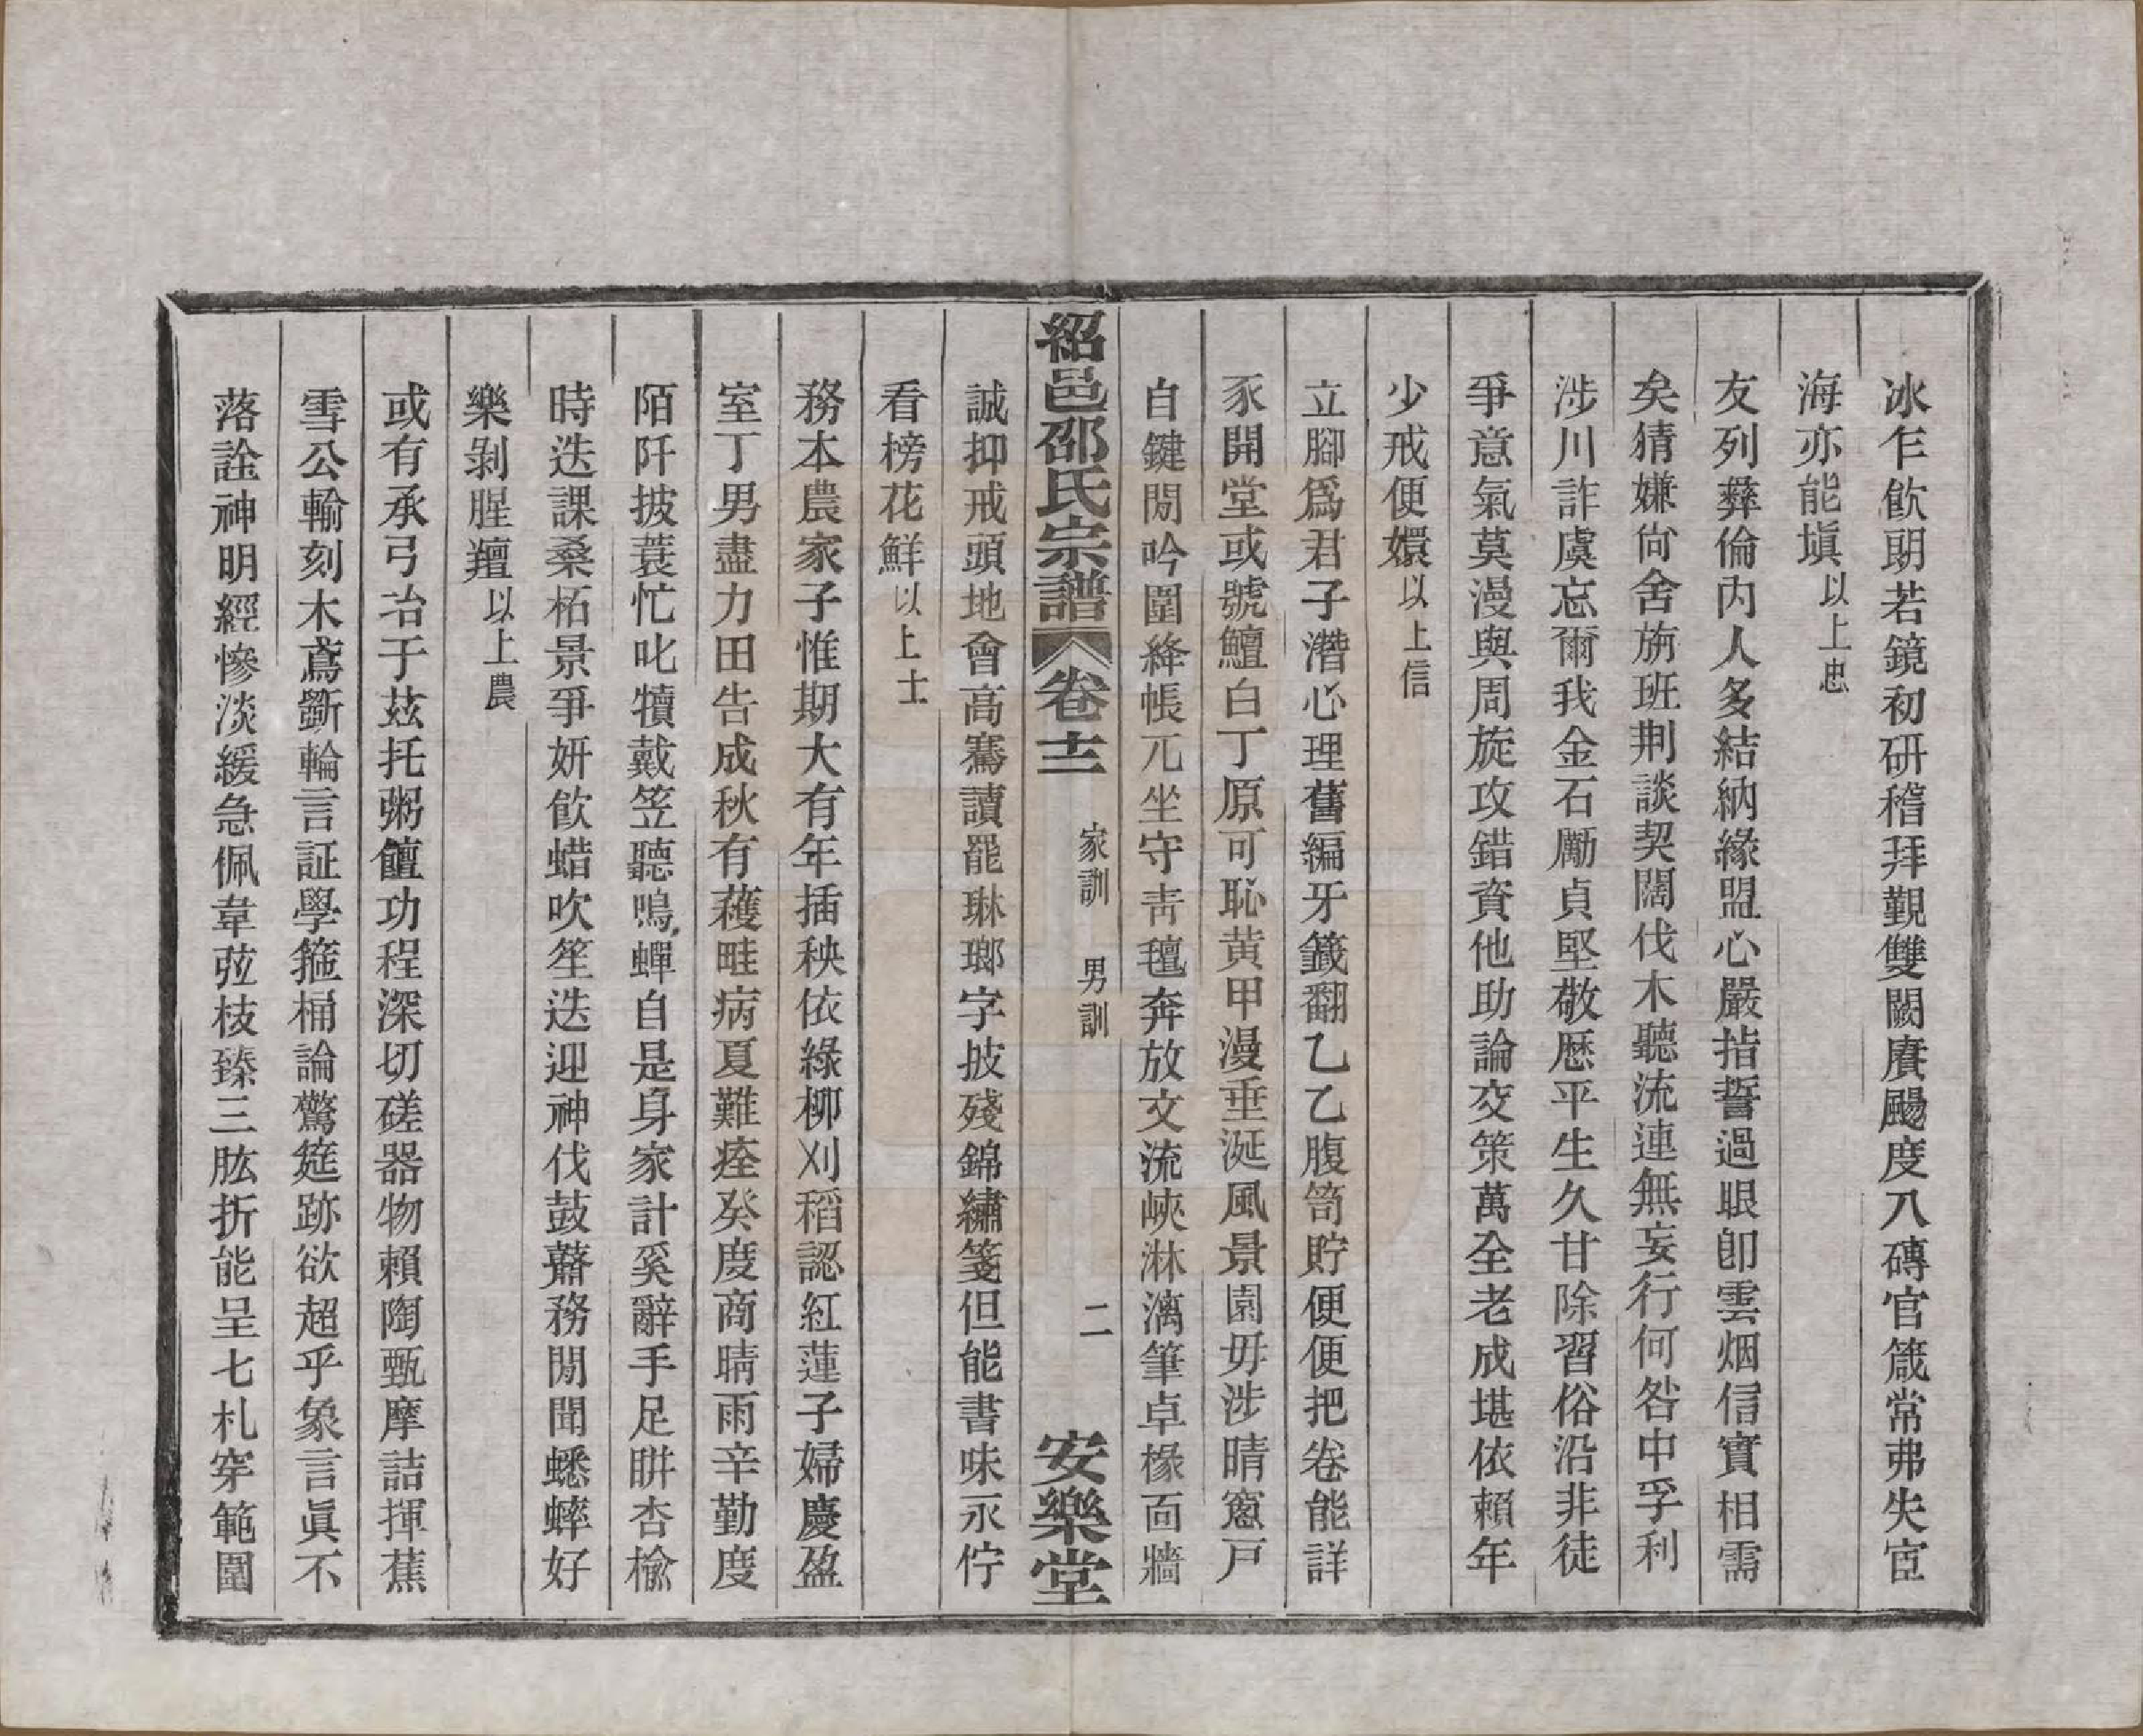 冰乍飲朙若鏡初硏稽拜覲雙闕賡颺度八磚官箴常弗失宧
海亦能塡以上忠
友列彝倫內人多結納緣盟心嚴指誓過眼卽雲烟信實相需
矣猜嫌尙舍旃班荆談契闊伐木聽流連無妄行何咎中孚利
涉川詐虞忘爾我金石勵貞堅敬厯平生久甘除習俗沿非徒
爭意氣莫漫與周旋攻錯資他助論交策萬全老成堪依賴年
少戒便嬛以上信
立腳爲君子潛心理舊編牙籤翻乙乙腹笥貯便便把卷能詳
豕開堂或號鱣白丁原可恥黃甲漫垂涎風景園毋涉晴窻戸
自鍵閒吟圍絳帳兀坐守靑氊奔放文流峽淋漓筆卓椽面牆
紹邑邵氏宗譜 卷十二 家訓 男訓 二 安樂堂
誠抑戒頭地會高騫讀罷琳瑯字披殘錦繡箋但能書味永佇
看榜花鮮以上士
務本農家子惟期大有年插秧依綠柳刈稻認紅蓮子婦慶盈
室丁男盡力田告成秋有蕵畦病夏難痊癸度商晴雨辛勤度
陌阡披蓑忙叱犢戴笠聽鳴蟬自是身家計奚辭手足胼杏楡
時迭課桑柘景爭妍飮蜡吹笙迭迎神伐鼓鼛務閒聞蟋蟀好
樂剝腥羶以上農
或有承弓冶于茲托粥饘功程深切磋器物賴陶甄摩詰揮蕉
雪公輸刻木鳶斵輪言証學箍桶論驚筵跡欲超乎象言眞不
落詮神明經慘淡緩急佩韋弦枝臻三肱折能呈七札穿範圍